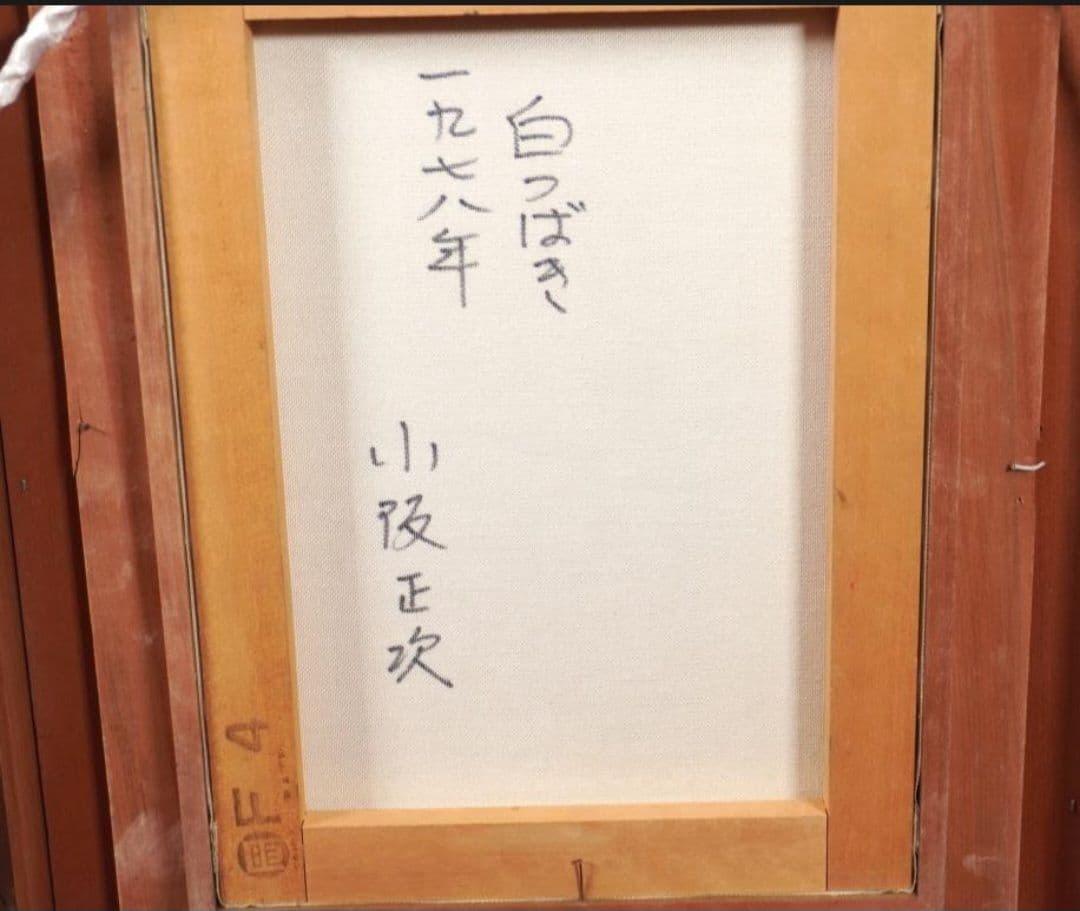 白つばき
一九七八年
小阪正次
F 4